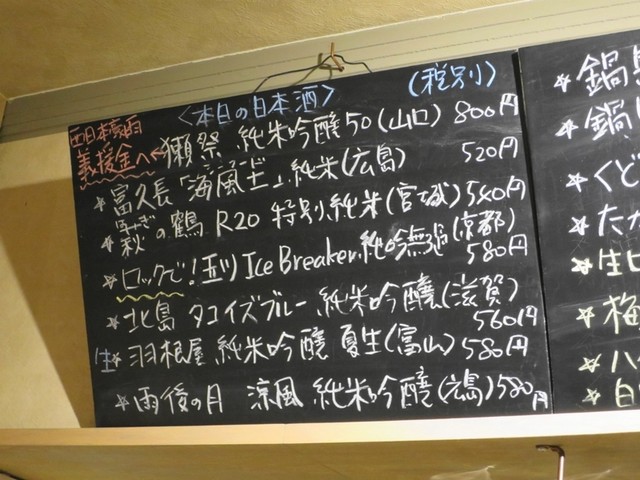 <本日の日本酒> (税別)
西日本豪雨
義援金へ
獺祭 純米吟醸50(山口) 800円
★富久長「海風土」純米(広島) 520円
★萩の鶴 R20 特別純米(宮城) 540円
はぎ
★ロックで!玉川 Ice Breaker 純吟無濾過(京都) 580円
★北島 タコイズブルー 純米吟醸(滋賀) 560円
生★羽根屋 純米吟醸 夏生(富山) 580円
★雨後の月 涼風 純米吟醸(広島) 580円
★鍋
★鍋
★くど
★たた
★生ビ
★梅
★ハ
★白